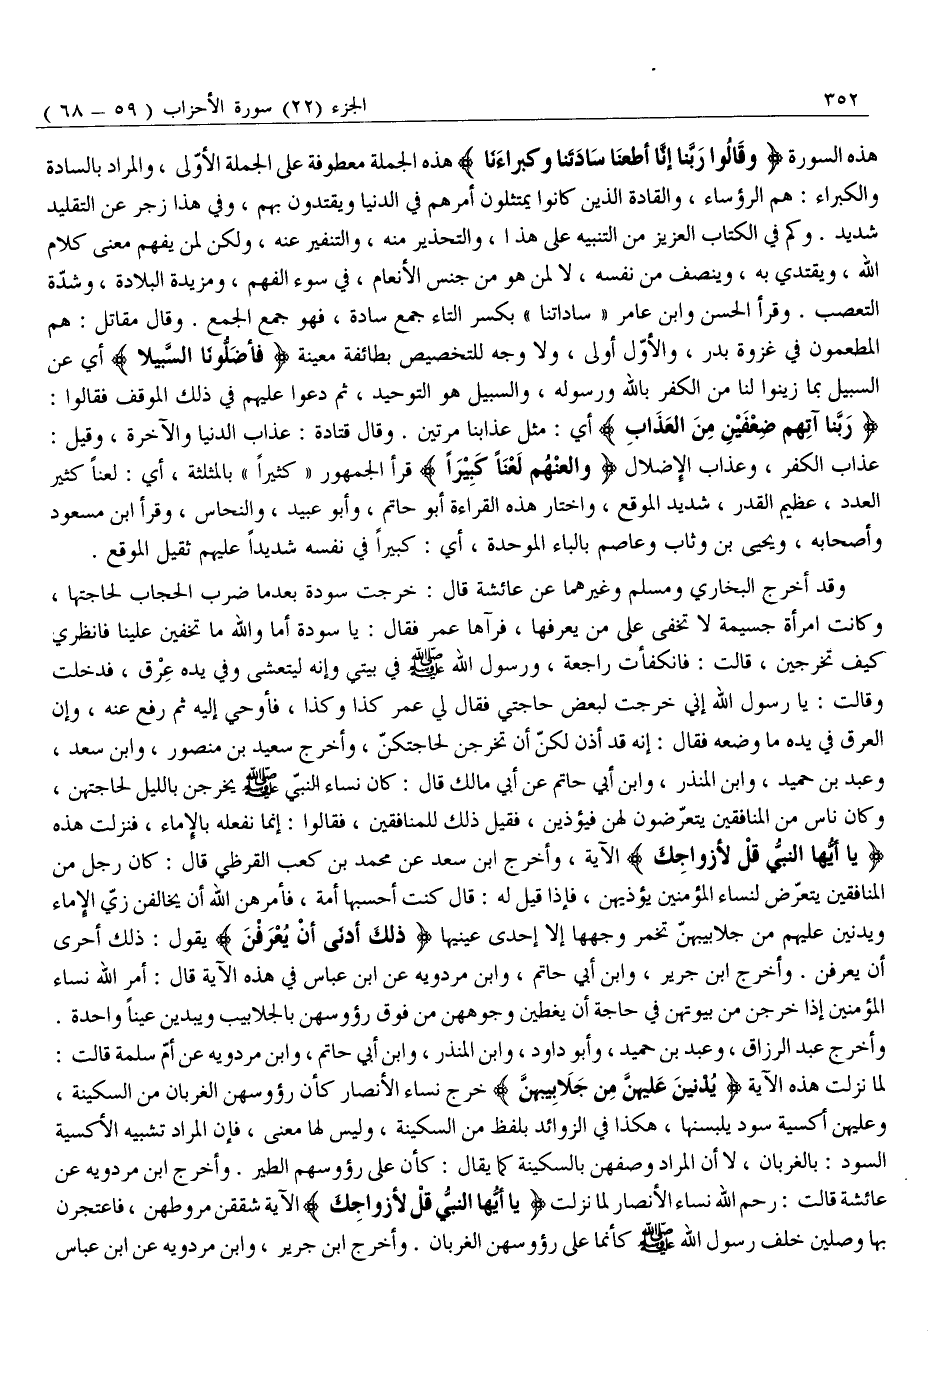 ٣٥٢
الجزء (٢٢) سورة الأحزاب ( ٥٩ – ٦٨ )
هذه السورة ﴿ وقَالُوا رَبَّنا إنَّا أطعنَا سادَتَنا وكبراءَنَا ﴾ هذه الجملة معطوفة على الجملة الأوّلى ، والمراد بالسادة
والكبراء : هم الرؤساء ، والقادة الذين كانوا يمتثلون أمرهم في الدنيا ويقتدون بهم ، وفي هذا زجر عن التقليد
شديد . وكم في الكتاب العزيز من التنبيه على هذا ، والتحذير منه ، والتنفير عنه ، ولكن لمن يفهم معنى كلام
الله ، ويقتدي به ، وينصف من نفسه ، لا لمن هو من جنس الأنعام ، في سوء الفهم ، ومزيدة البلادة ، وشدّة
التعصب . وقرأ الحسن وابن عامر « ساداتنا » بكسر التاء جمع سادة ، فهو جمع الجمع . وقال مقاتل : هم
المطعمون في غزوة بدر ، والأوّل أولى ، ولا وجه للتخصيص بطائفة معينة ﴿ فأضلُّونَا السَّبيلا ﴾ أي عن
السبيل بما زينوا لنا من الكفر بالله ورسوله ، والسبيل هو التوحيد ، ثم دعوا عليهم في ذلك الموقف فقالوا :
﴿ رَبَّنا آتِهم ضِعْفَيْنِ مِنَ العَذَابِ ﴾ أي : مثل عذابنا مرتين . وقال قتادة : عذاب الدنيا والآخرة ، وقيل :
عذاب الكفر ، وعذاب الإضلال ﴿ والعنْهُم لَعْنَاً كَبِيْرَاً ﴾ قرأ الجمهور « كثيراً » بالمثلثة ، أي : لعناً كثير
العدد ، عظيم القدر ، شديد الموقع ، واختار هذه القراءة أبو حاتم ، وأبو عبيد ، والنحاس ، وقرأ ابن مسعود
وأصحابه ، ويحيى بن وثاب وعاصم بالباء الموحدة ، أي : كبيراً في نفسه شديداً عليهم ثقيل الموقع .
وقد أخرج البخاري ومسلم وغيرهما عن عائشة قال : خرجت سودة بعدما ضرب الحجاب لحاجتها ،
وكانت امرأة جسيمة لا تخفى على من يعرفها ، فرآها عمر فقال : يا سودة أما والله ما تخفين علينا فانظري
كيف تخرجين ، قالت : فانكفأت راجعة ، ورسول الله ﷺ في بيتي وإنه ليتعشى وفي يده عِرْق ، فدخلت
وقالت : يا رسول الله إني خرجت لبعض حاجتي فقال لي عمر كذا وكذا ، فأوحي إليه ثم رفع عنه ، وإن
العرق في يده ما وضعه فقال : إنه قد أذن لكنّ أن تخرجن لحاجتكنّ ، وأخرج سعيد بن منصور ، وابن سعد ،
وعبد بن حميد ، وابن المنذر ، وابن أبي حاتم عن أبي مالك قال : كان نساء النبيّ ﷺ يخرجن بالليل لحاجتهن ،
وكان ناس من المنافقين يتعرّضون لهن فيؤذين ، فقيل ذلك للمنافقين ، فقالوا : إنما نفعله بالإماء ، فنزلت هذه
﴿ يا أيُّها النبيُّ قلْ لأزواجِكَ ﴾ الآية ، وأخرج ابن سعد عن محمد بن كعب القرظي قال : كان رجل من
المنافقين يتعرّض لنساء المؤمنين يؤذيهن ، فإذا قيل له : قال كنت أحسبها أمة ، فأمرهن الله أن يخالفن زيّ الإماء
ويدنين عليهم من جلابيبهنّ تخمر وجهها إلا إحدى عينيها ﴿ ذلكَ أدنَى أنْ يُعْرَفْنَ ﴾ يقول : ذلك أحرى
أن يعرفن . وأخرج ابن جرير ، وابن أبي حاتم ، وابن مردويه عن ابن عباس في هذه الآية قال : أمر الله نساء
المؤمنين إذا خرجن من بيوتهن في حاجة أن يغطين وجوههن من فوق رؤوسهن بالجلابيب ويبدين عيناً واحدة .
وأخرج عبد الرزاق ، وعبد بن حميد ، وأبو داود ، وابن المنذر ، وابن أبي حاتم ، وابن مردويه عن أمّ سلمة قالت :
لما نزلت هذه الآية ﴿ يُدْنينَ عَليهنَّ مِن جَلَابِيبهنَّ ﴾ خرج نساء الأنصار كأن رؤوسهن الغربان من السكينة ،
وعليهن أكسية سود يلبسنها ، هكذا في الزوائد بلفظ من السكينة ، وليس لها معنى ، فإن المراد تشبيه الأكسية
السود : بالغربان ، لا أن المراد وصفهن بالسكينة كما يقال : كأن على رؤوسهم الطير . وأخرج ابن مردويه عن
عائشة قالت : رحم الله نساء الأنصار لما نزلت ﴿ يا أيُّها النبيُّ قلْ لأزواجِكَ ﴾ الآية شققن مروطهن ، فاعتجرن
بها وصلين خلف رسول الله ﷺ كأنما على رؤوسهن الغربان . وأخرج ابن جرير ، وابن مردويه عن ابن عباس